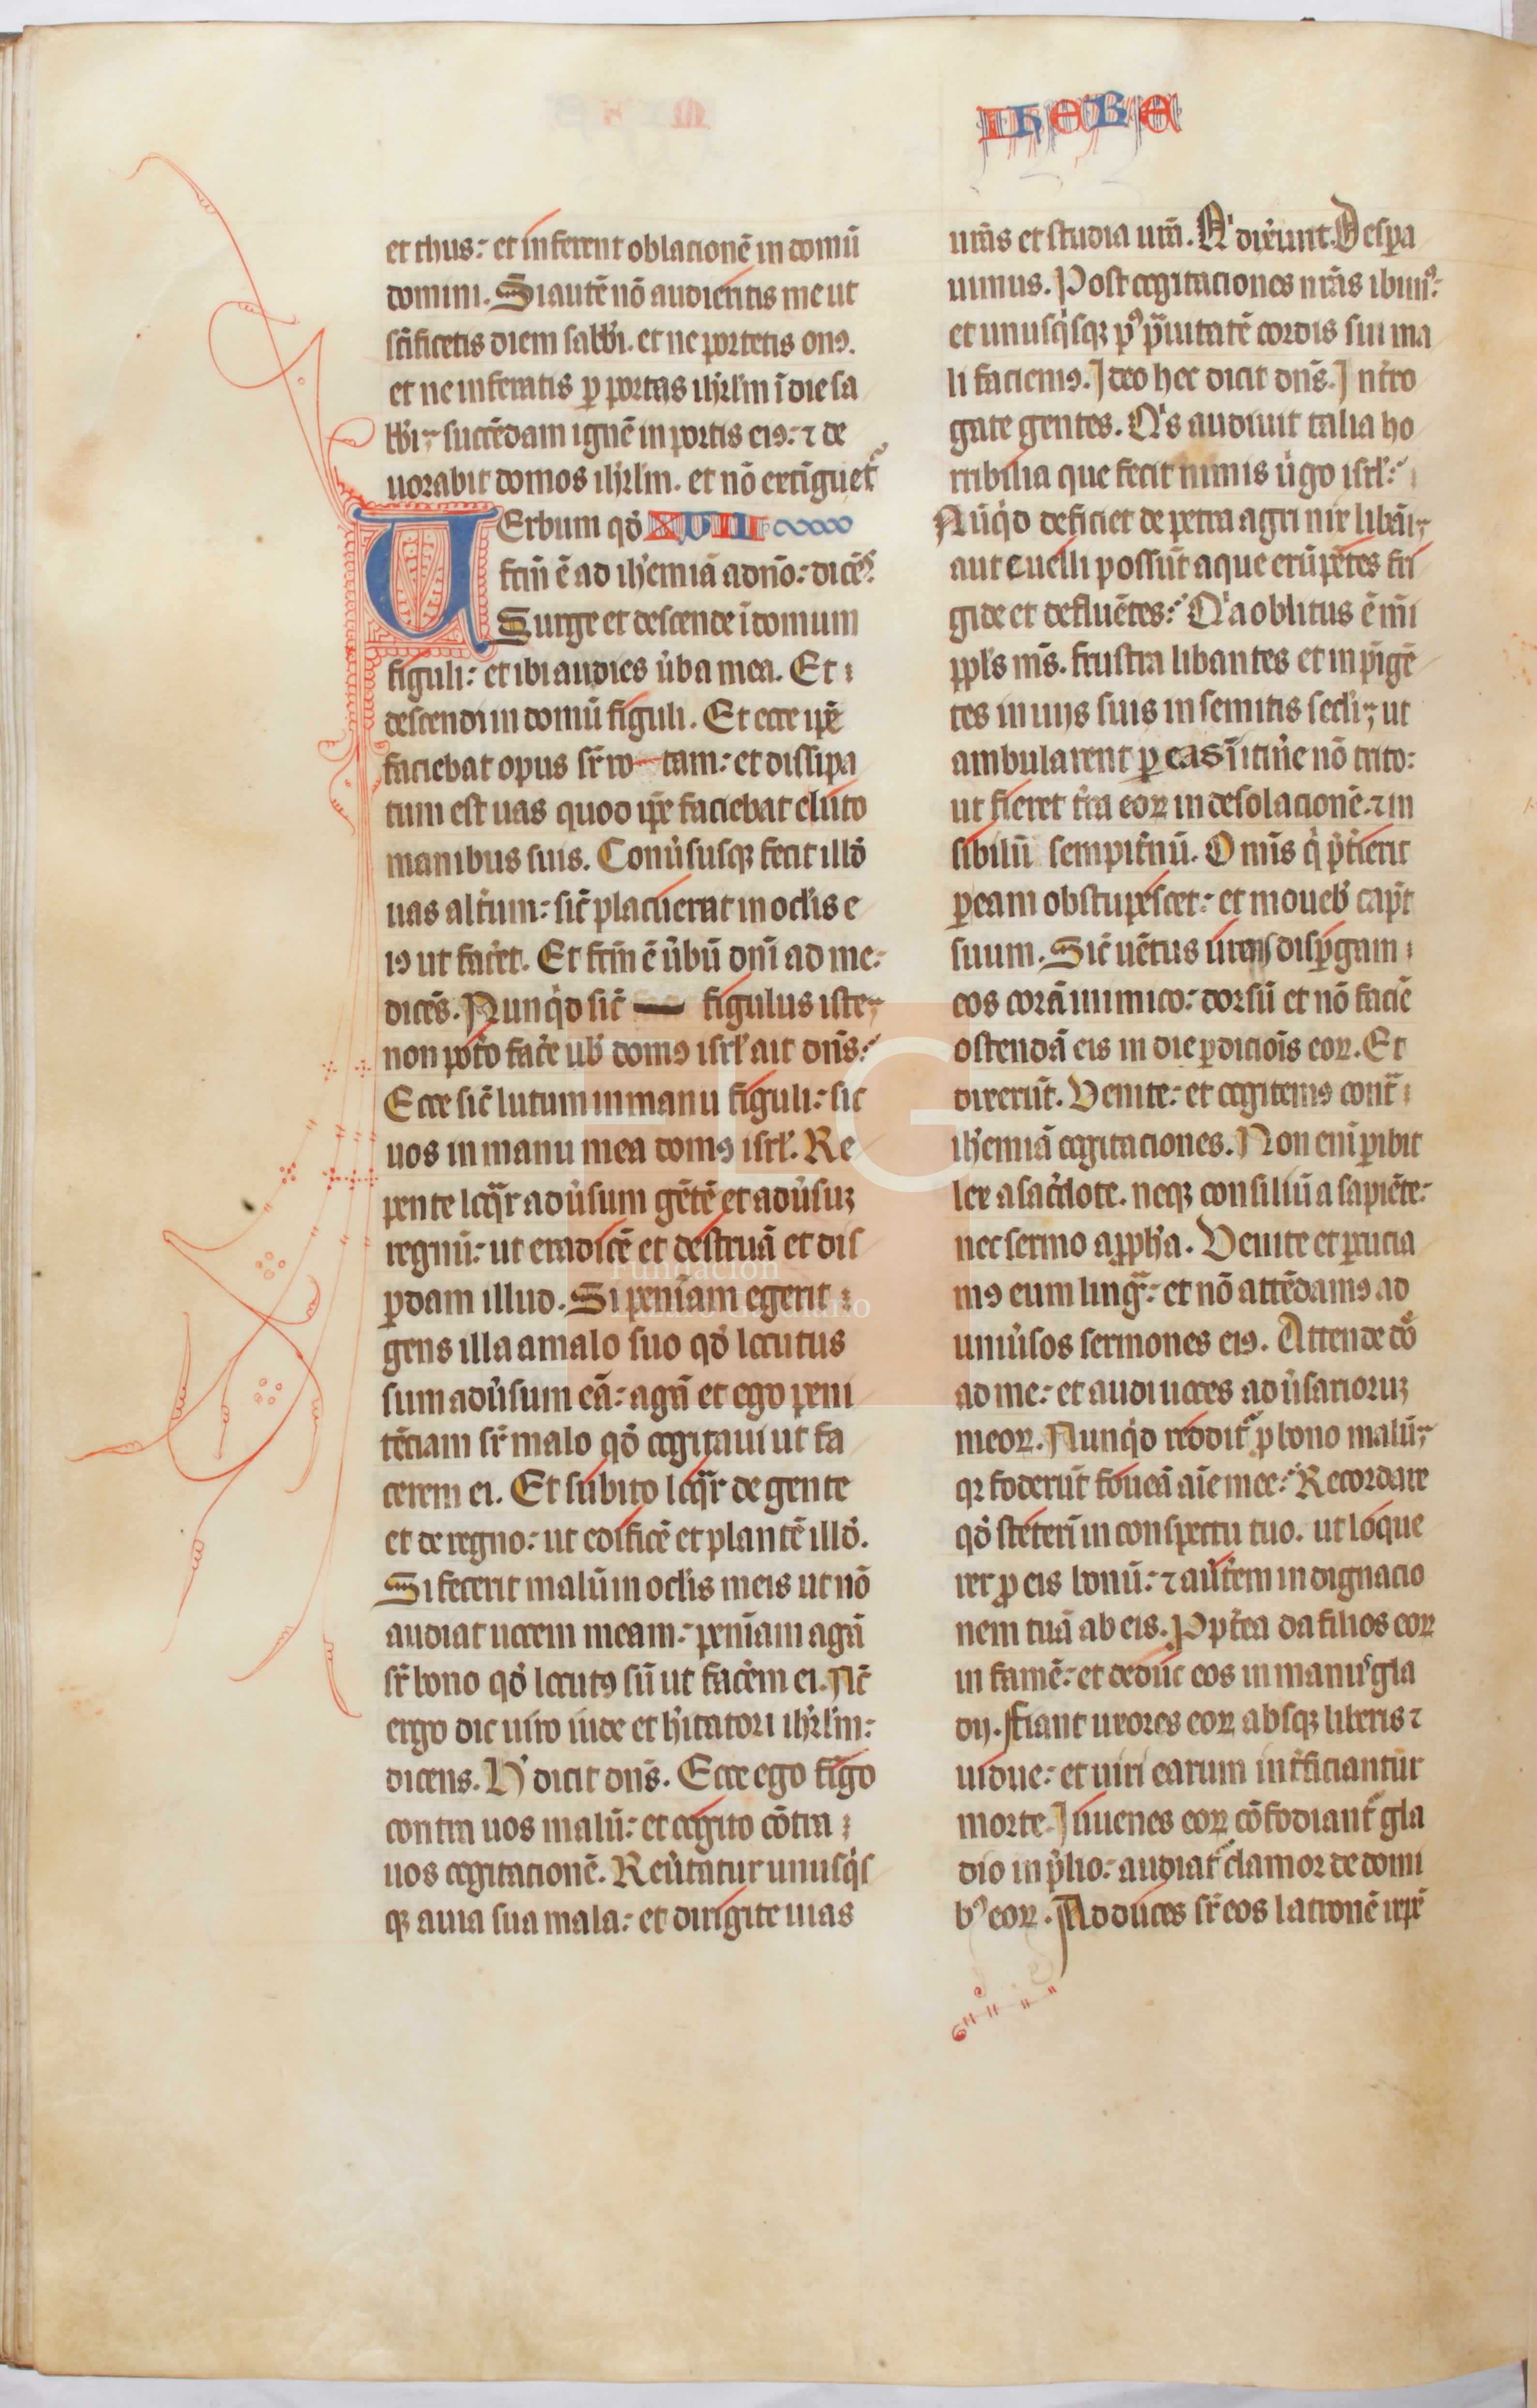 IhERE
et thus: et inferent oblacionē in domū
domini. Si autē nō audieritis me ut
sc̄ificetis diem sabb̄i. et ne portetis onꝰ.
et ne inferatis ꝑ portas ih̄rlm̄ ī die sa
bb̄i; succēdam ignē in portis eiꝰ: ⁊ de
uorabit domos ih̄rlm̄. et nō extīguet᷑
UErbum qd̄ XVIII
fc̄m̄ ē ad ih̓emiā a dn̄o: dicēs.
Surge et descende ī domum
figuli: et ibi audies ūba mea. Et
descendi in domū figuli. Et ecce ip̄e
faciebat opus sr̄ ro tam: et dissipa
tum est uas quod ip̄e faciebat e luto
manibus suis. Conūsusqꝫ fecit illd̄
uas alt̄um: sic̄ placuerat in ocl̄is e
iꝰ ut fac̄et. Et fc̄m̄ ē ūbū dn̄i ad me:
dicēs. Nunqd̄ sic̄ figulus iste;
non pot̄o fac̄e uob̄ domꝰ isrl̄ ait dn̄s:
Ecce sic̄ lutum in manu figuli: sic
uos in manu mea domꝰ isrl̄. Re
pente loqr̄ adūsum gētē et adūsuꝫ
regnū: ut eradicē et destruā et dis
ꝑdam illud. Si penīam egerit
gens illa a malo suo qd̄ locutus
sum adūsum eā: agā et ego peni
tēciam sr̄ malo qd̄ cogitaui ut fa
cerem ei. Et subito loqr̄ de gente
et de regno: ut edificē et plantē illd̄.
Si fecerit malū in ocl̄is meis ut nō
audiat uocem meam: penīam agā
sr̄ bono qd̄ locutꝰ sū ut fac̄em ei. Nc̄
ergo dic uiro iude et h̄itatori ih̄rlm̄:
dicens. H̓ dicit dn̄s. Ecce ego fīgo
contra uos malū: et cogito cōtra
uos cogitacionē. Reūtatur unusqi̓s
qꝫ a uia sua mala: et dirigite uias
ur̄as et studia ur̄a. Q̓ dix̄unt. Despa
uimus. Post cogitaciones nr̄as ibimꝰ:
et unusqi̓sqꝫ pꝰ pr̄auitatē cordis sui ma
li faciemꝰ. Ideo hec dicit dn̄s. Int̄ro
gate gentes. Qi̓s audiuit talia ho
rribilia que fecit nimis ūgo isrl̄:
Nūqd̄ deficiet de petra agri nix libāi;
aut euelli possūt aque erūpētes fri
gide et defluētes: Q̓a oblitus ē m̄i
ppl̄s mꝰ. frustra libantes et inpīgē
tes in uijs suis in semitis secl̄i; ut
ambularent ꝑ eas ī itin̄e nō trito:
ut fieret t̄ra eoꝝ in desolacionē. ⁊ in
sibilū sempit̄nū. Omīs q̓ pt̄ierit
ꝑ eam obstupescet: et moueb̄ capt̄
suum. Sic̄ uētus urens disꝑgam
eos corā inimico: dorsū et nō faciē
ostendā eis in die ꝑdiciōis eoꝝ. Et
dixerūt. Venite: et cogitemꝰ cont̄
ih̓emiā cogitaciones. Non enī ꝑibit
lex a sac̄dote. neqꝫ consiliū a sapiēte:
nec sermo a ꝓph̄a. Venite et ꝑcucia
mꝰ eum lingᷓ: et nō attēdamꝰ ad
uniūsos sermones eiꝰ. Attende dn̄e
ad me: et audi uoces adūsarioruꝫ
meoꝝ. Nunqd̄ reddit᷑ ꝓ bono malū;
qꝛ foderūt foueā aīe mee: Recordare
qd̄ steterī in conspectu tuo. ut loque
rer ꝓ eis bonū: ⁊ aūt̄em indignacio
nem tuā ab eis. Ppt̄ea da filios eoꝝ
in famē: et deduc eos in manus gla
dij. fiant uxores eoꝝ absqꝫ liberis ⁊
uidue: et uiri earum int̄ficiantur
morte. Iuuenes eoꝝ cōfodiant᷑ gla
dio in pl̄io: audiat᷑ clamor de domi
bꝰ eoꝝ. Adduces sr̄ eos latronē repē
Fundación
Lázaro Galdiano